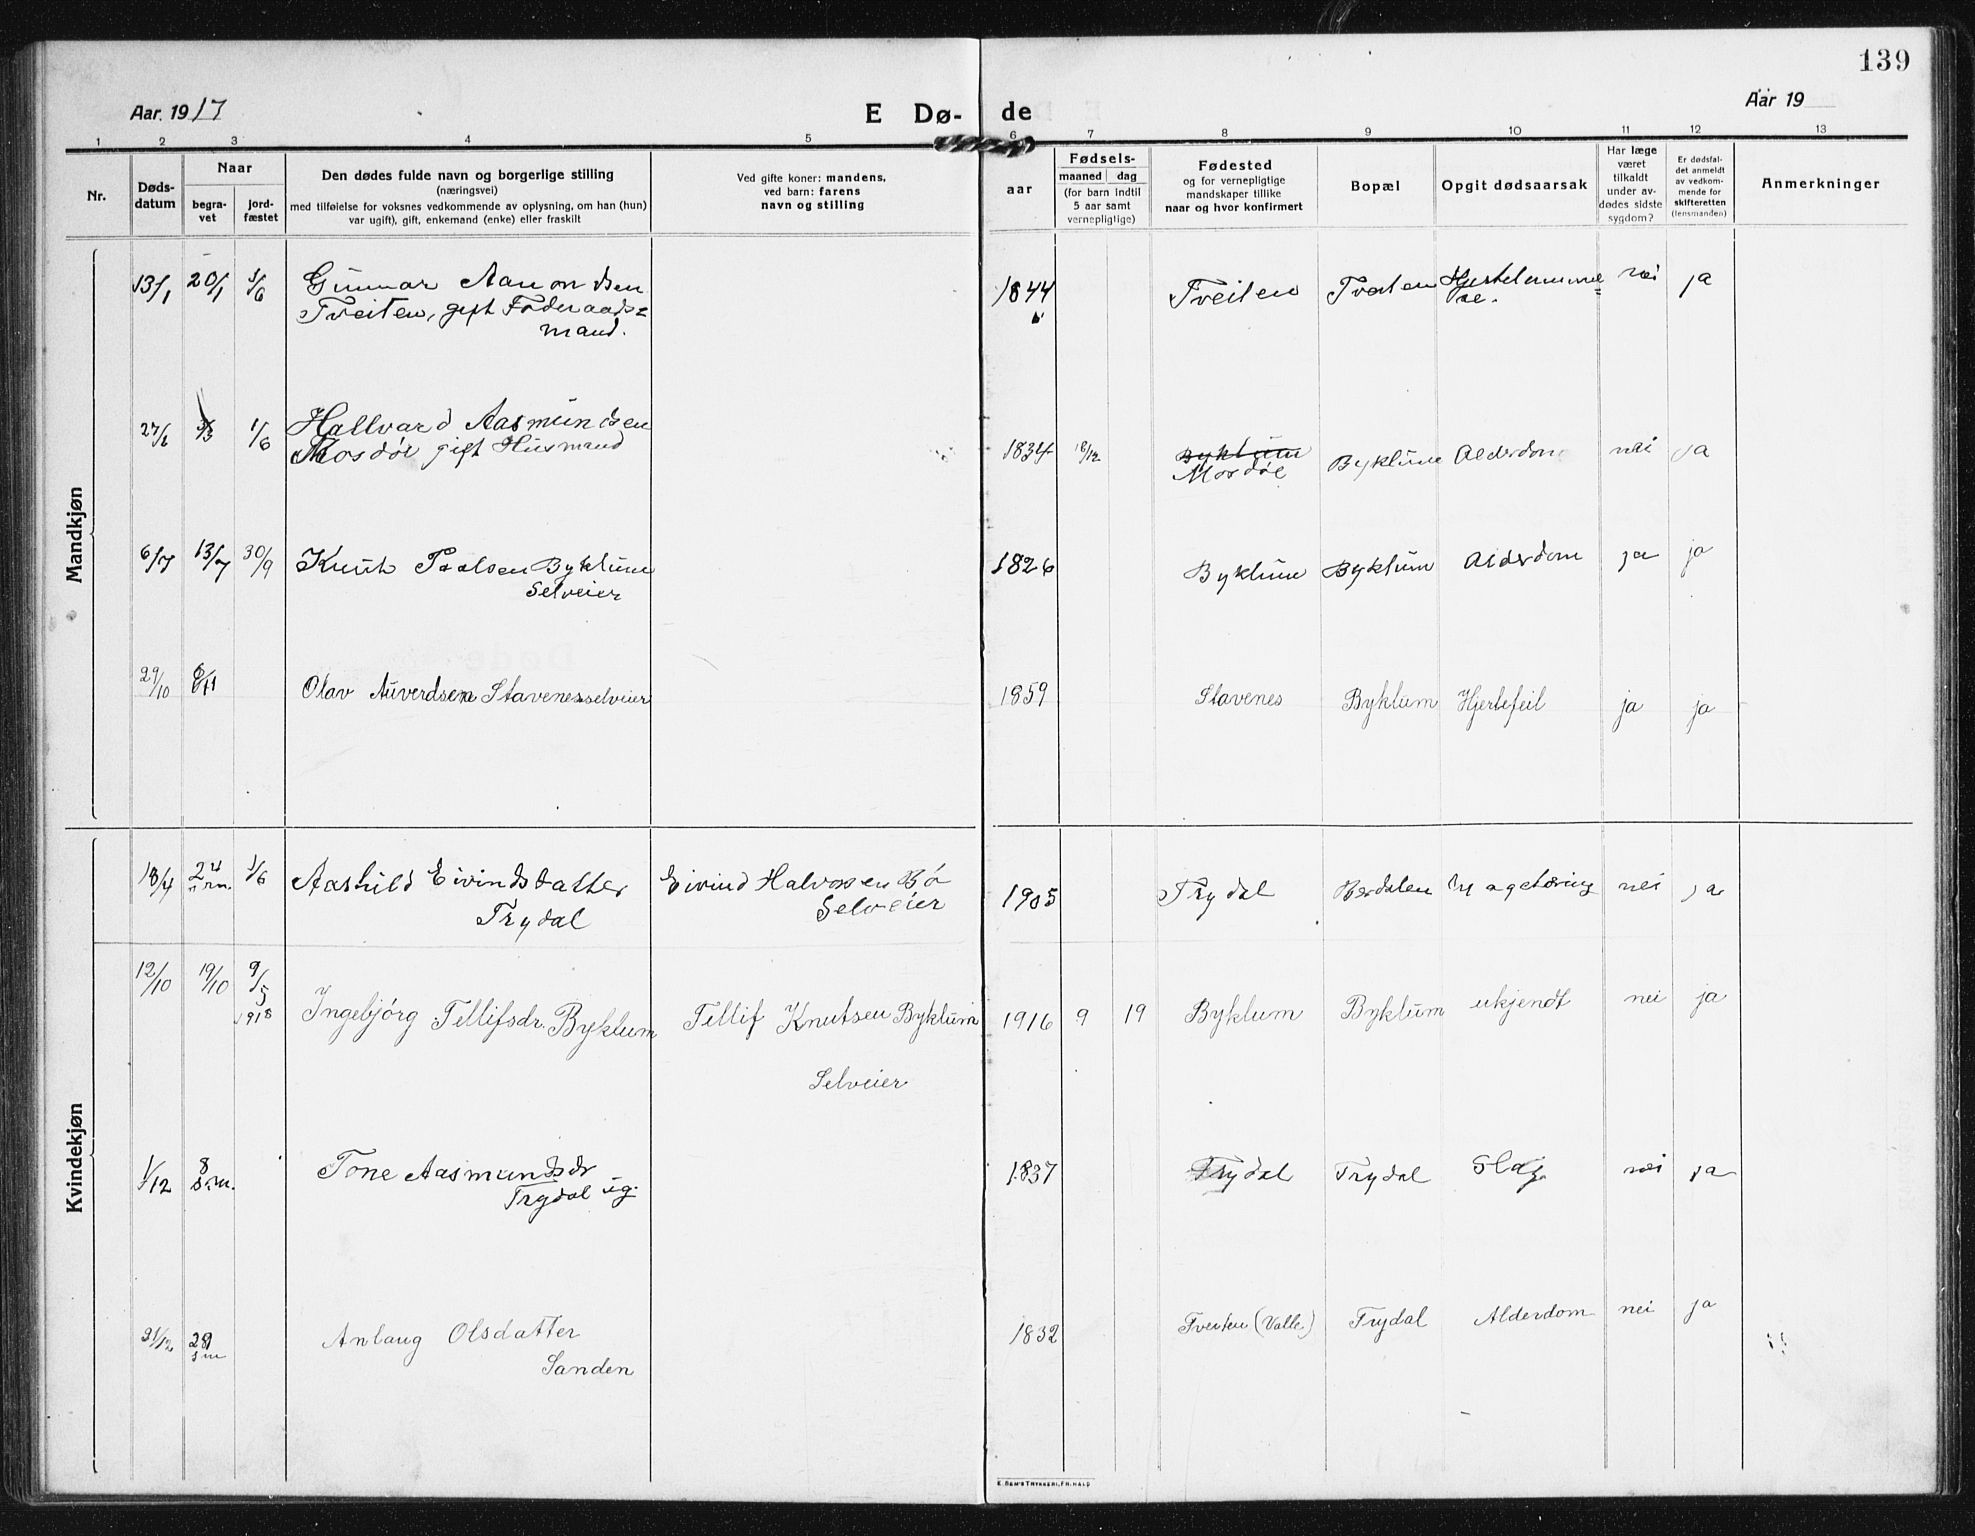 139
Aar. 1917
E Dø- de
Aar 19
1 2 3 4 5 6 7 8 9 10 11 12 13
Nr.
Døds-
datum
Naar
begra-
vet
jord-
fæstet
Den dødes fulde navn og borgerlige stilling
(næringsvei)
med tilføielse for voksnes vedkommende av oplysning, om han (hun)
var ugift), gift, enkemand (enke) eller fraskilt
Ved gifte koner: mandens,
ved barn: farens
navn og stilling
aar
Fødsels-
maaned dag
(for barn indtil
5 aar samt
vernepligtige)
Fødested
og for vernepligtige
mandskaper tillike
naar og hvor konfirmert
Bopæl
Opgit dødsaarsak
Har læge
været
tilkaldt
under av-
dødes sidste
sygdom?
Er dødsfal-
det anmeldt
av vedkom-
mende for
skifteretten
(lensmanden)
Anmerkninger
Mandkjøn
13/1 20/1 3/6 Gunnar Aanondsen
Tveiten, gift Føderaads=
mand.
1844 Tveiten Tveiten nei ja
1/6 Hallvard Aasmundsen
Mosdøl gift Husmand
1834 18/12 Byklum
Mosdøl Byklum Alderdom nei ja
6/7 13/7 30/9 Knut Paalsen Byklum
Selveier
1826 Byklum Byklum Alderdom ja ja
29/10 Olav Auverdsen Stavenes selveier
1859 Stavenes Byklum Hjertefeil ja ja
Kvindekjøn
18/4 24 1/6 Aashild Eivindsdatter
Trydal
Eivind Halvorsen Bø
Selveier
1905 Trydal Berdalen nei ja
12/10 19/10 9/5
1918
Ingebjørg Tellifsdr. Byklum
Tellif Knutsen Byklum
Selveier
1916 9 19 Byklum Byklum ukjendt nei ja
1/12 8
s.m.
Tone Aasmundsdr
Trydal ug.
1837 Trydal Trydal Slag nei ja
21/12 28
s m
Anlaug Olsdatter
Sanden
1832 Tveiten (Valle) Trydal Alderdom nei ja
E. SEM'S TRYKKERI, FR.HALD